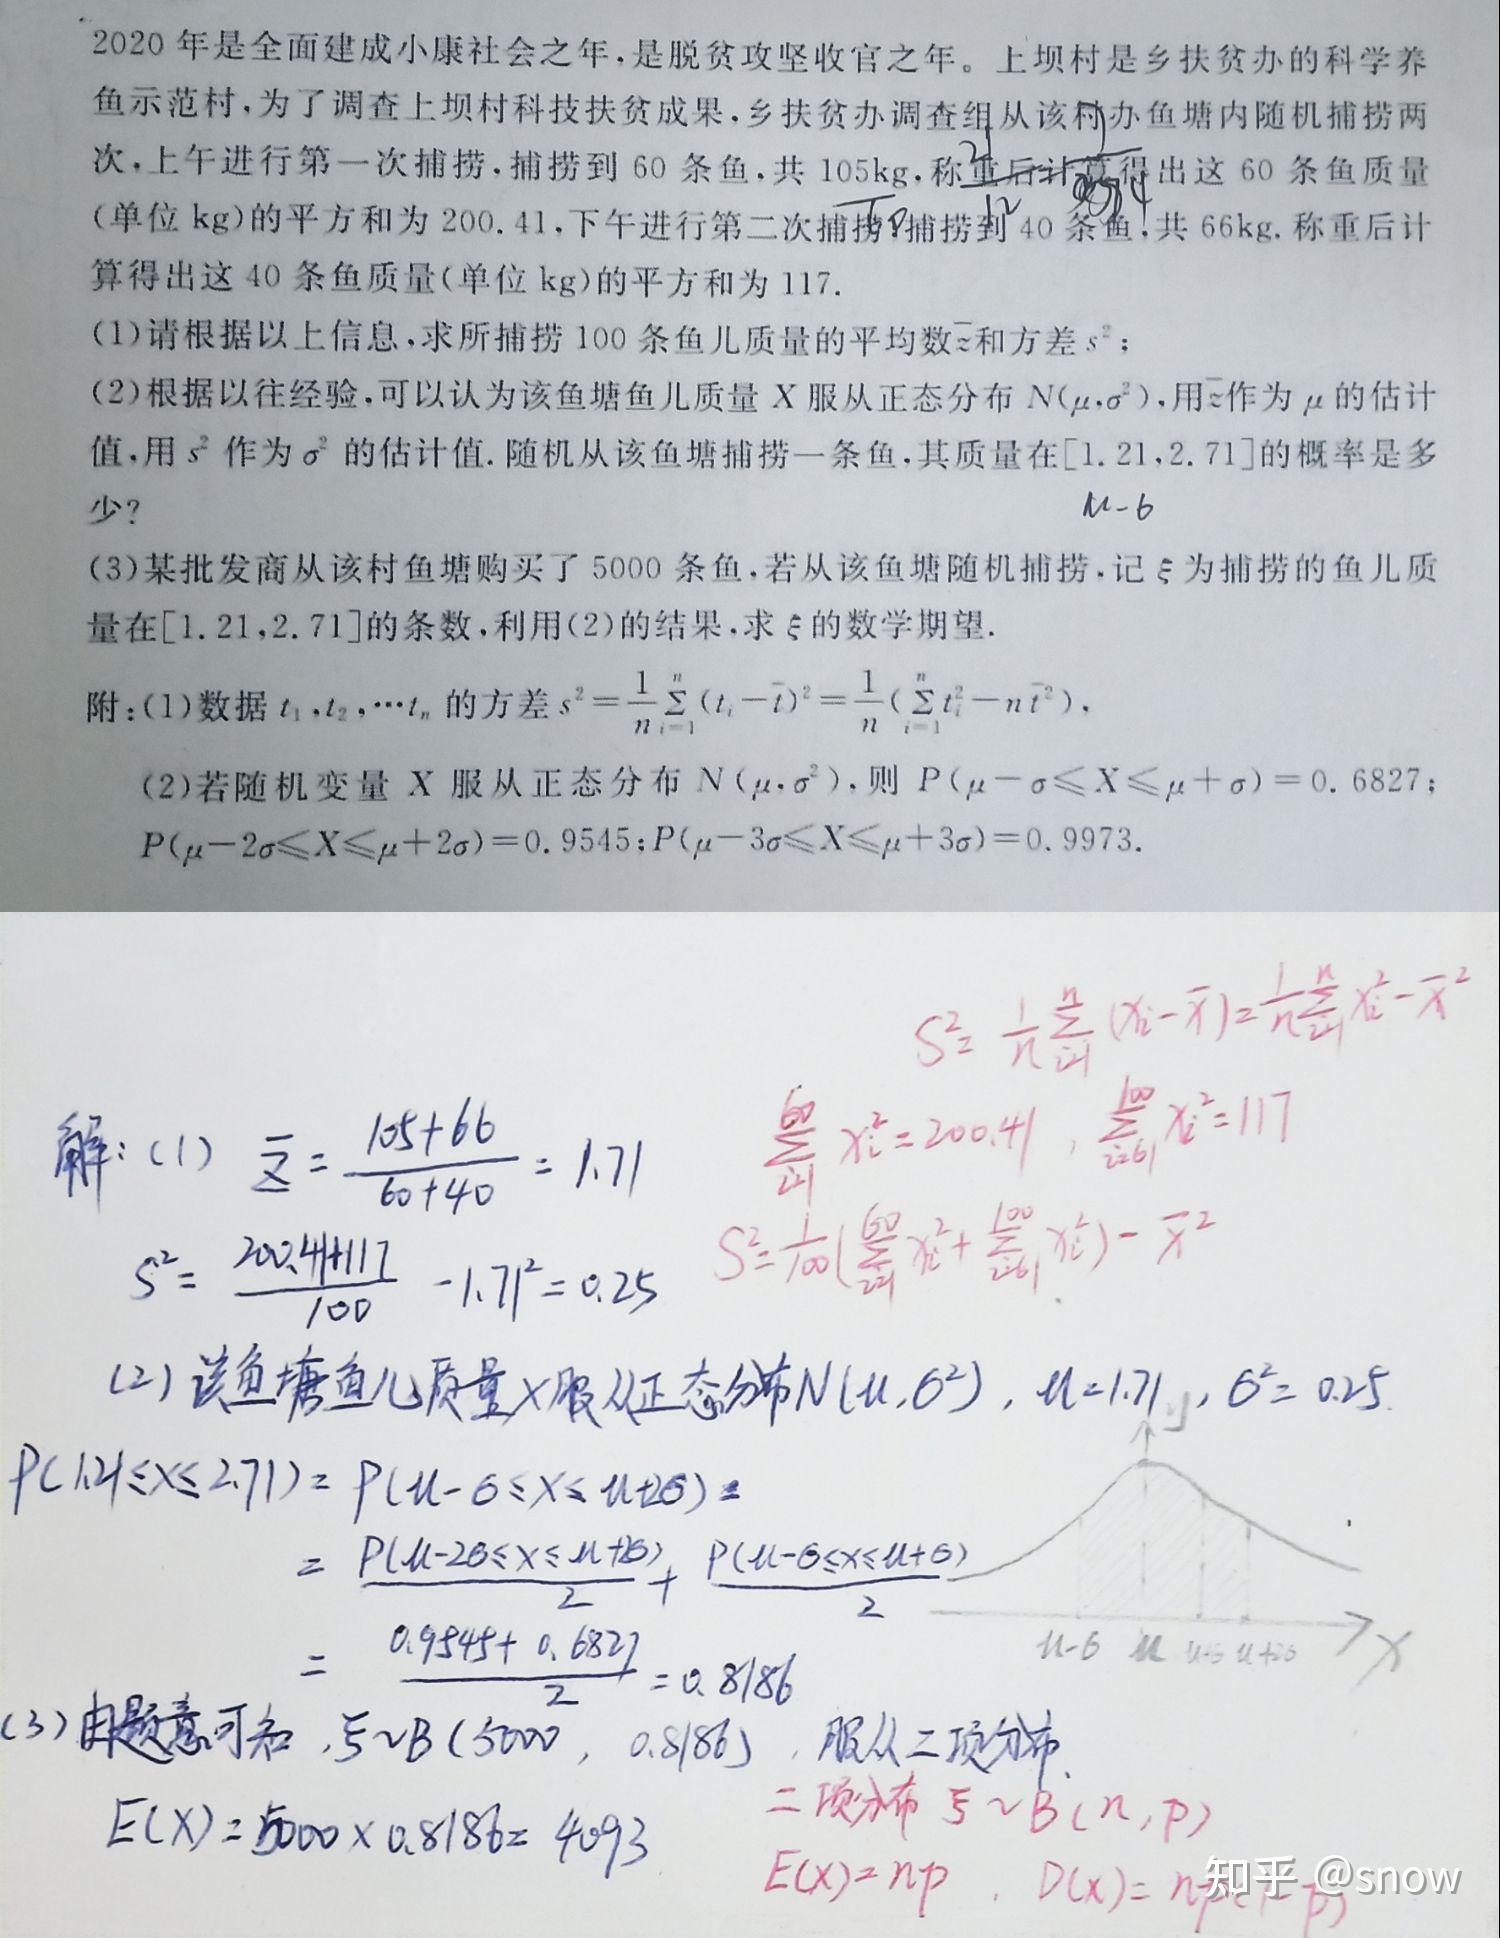 2020年是全面建成小康社会之年,是脱贫攻坚收官之年。上坝村是乡扶贫办的科学养
鱼示范村,为了调查上坝村科技扶贫成果,乡扶贫办调查组从该村办鱼塘内随机捕捞两
次,上午进行第一次捕捞,捕捞到60条鱼,共105kg,称重后计算得出这60条鱼质量
(单位kg)的平方和为200.41,下午进行第二次捕捞,捕捞到40条鱼,共66kg.称重后计
算得出这40条鱼质量(单位kg)的平方和为117.
(1)请根据以上信息,求所捕捞100条鱼儿质量的平均数z̄和方差s²;
(2)根据以往经验,可以认为该鱼塘鱼儿质量X服从正态分布N(μ,σ²),用z̄作为μ的估计
值,用s²作为σ²的估计值.随机从该鱼塘捕捞一条鱼,其质量在[1.21,2.71]的概率是多
少?
μ-σ
(3)某批发商从该村鱼塘购买了5000条鱼,若从该鱼塘随机捕捞,记ξ为捕捞的鱼儿质
量在[1.21,2.71]的条数,利用(2)的结果,求ξ的数学期望.
附:(1)数据t₁,t₂,…tₙ的方差s²=1/n Σ_{i=1}^{n}(tᵢ-t̄)²=1/n(Σ_{i=1}^{n}tᵢ²-nt̄²),
(2)若随机变量X服从正态分布N(μ,σ²),则P(μ-σ≤X≤μ+σ)=0.6827;
P(μ-2σ≤X≤μ+2σ)=0.9545;P(μ-3σ≤X≤μ+3σ)=0.9973.
S²=1/n Σ_{i=1}^{n}(xᵢ-x̄)=1/n Σ_{i=1}^{n}xᵢ²-x̄²
解:(1) z̄=(105+66)/(60+40)=1.71
Σ_{i=1}^{60}xᵢ²=200.41,Σ_{i=61}^{100}xᵢ²=117
S²=(200.41+117)/100-1.71²=0.25
S²=1/100(Σ_{i=1}^{60}xᵢ²+Σ_{i=61}^{100}xᵢ²)-x̄²
(2)该鱼塘鱼儿质量X服从正态分布N(μ,σ²),μ=1.71,σ²=0.25.
P(1.21≤X≤2.71)=P(μ-σ≤X≤μ+2σ)=
=P(μ-2σ≤X≤μ+2σ)/2+P(μ-σ≤X≤μ+σ)/2
y
μ-σ μ μ+σ μ+2σ X
=(0.9545+0.6827)/2=0.8186
(3)由题意可知,ξ~B(5000,0.8186),服从二项分布.
二项分布ξ~B(n,p)
E(X)=5000×0.8186=4093
E(X)=np,D(X)=np(1-p)
知乎 @snow